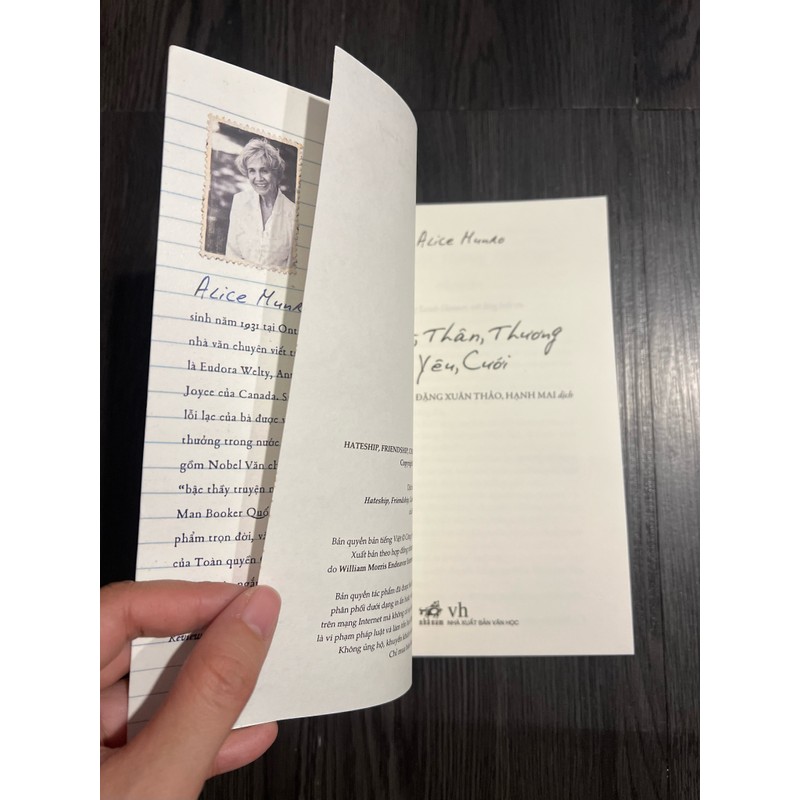 Alice Munro
sinh năm 1931 tại Ont
nhà văn chuyên viết t
là Eudora Welty, An
Joyce của Canada. S
lỗi lạc của bà được
thưởng trong nước
gồm Nobel Văn ch
“bậc thầy truyện n
Man Booker Quố
phẩm trọn đời, và
của Toàn quyền
ngắ
Review
HATESHIP, FRIENDSHIP, CO
Copyrig
Hateship, Friendship,
Bản quyền bản tiếng Việt © Côn
Xuất bản theo hợp đồng
do William Morris Endeavor
Bản quyền tác phẩm đã được
phân phối dưới dạng in ấn
trên mạng Internet mà không
là vi phạm pháp luật và làm
Không ủng hộ, khuyến khí
Chỉ mua
Alice Munro
, Thân, Thương
Yêu, Cưới
ĐẶNG XUÂN THẢO, HẠNH MAI dịch
vh
NHÃ NAM NHÀ XUẤT BẢN VĂN HỌC